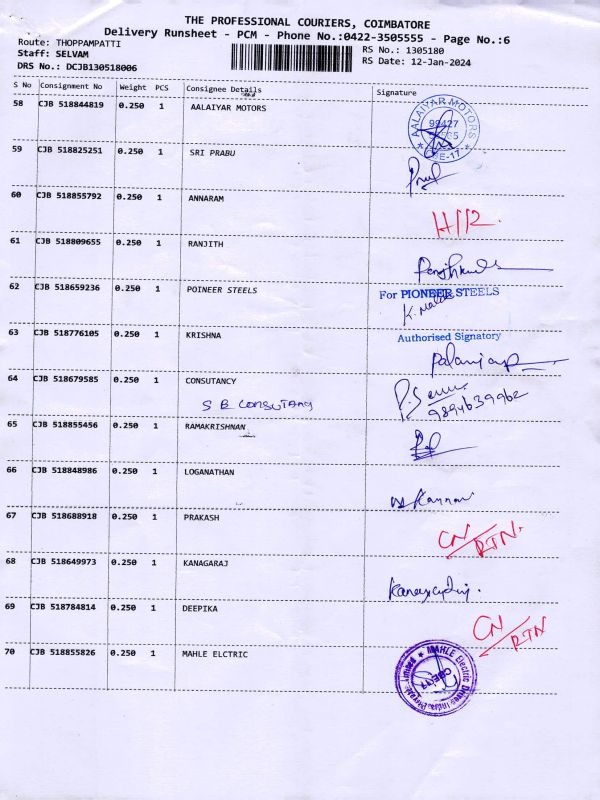 THE PROFESSIONAL COURIERS, COIMBATORE
Delivery Runsheet - PCM - Phone No.:0422-3505555 - Page No.:6
Route: THOPPAMPATTI
RS No.: 1305180
Staff: SELVAM
RS Date: 12-Jan-2024
DRS No.: DCJB130518006
S No Consignment No Weight PCS Consignee Details Signature
58 CJB 518844819 0.250 1 AALAIYAR MOTORS
AALAIYAR MOTORS
59 CJB 518825251 0.250 1 SRI PRABU
60 CJB 518855792 0.250 1 ANNARAM
61 CJB 518809655 0.250 1 RANJITH
62 CJB 518659236 0.250 1 POINEER STEELS
For PIONEER STEELS
Authorised Signatory
63 CJB 518776105 0.250 1 KRISHNA
64 CJB 518679585 0.250 1 CONSUTANCY
S B CONSUTANCY
9894639962
65 CJB 518855456 0.250 1 RAMAKRISHNAN
66 CJB 518848986 0.250 1 LOGANATHAN
67 CJB 518688918 0.250 1 PRAKASH
CN/RTN.
68 CJB 518649973 0.250 1 KANAGARAJ
69 CJB 518784814 0.250 1 DEEPIKA
CN/RTN
70 CJB 518855826 0.250 1 MAHLE ELCTRIC
MAHLE Electric Drives India Private Limited